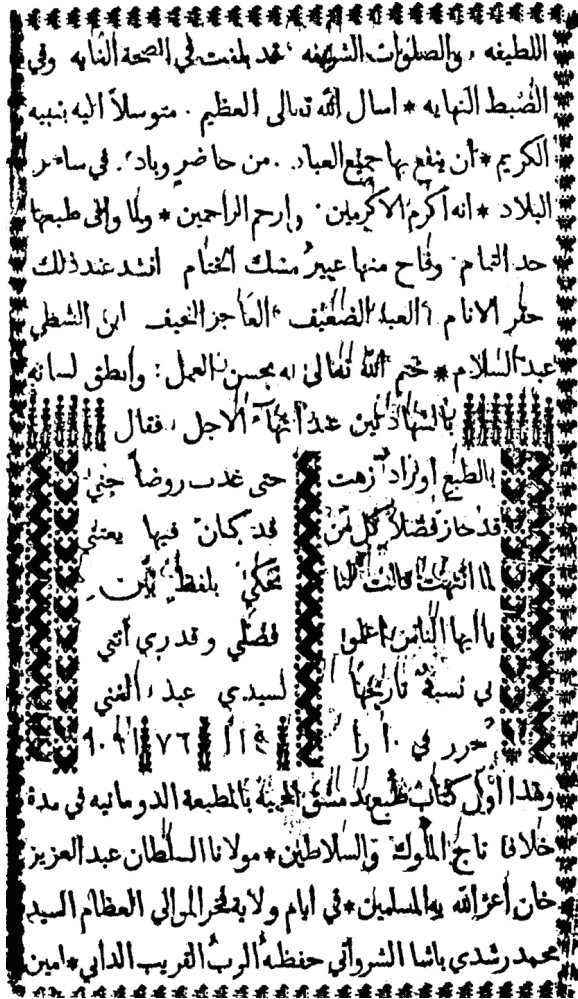 اللطيفه والصلوات الشريفه قد بلغت في الصحة الغايه وفي
الضبط النهايه * اسال الله تعالى العظيم . متوسلاً اليه بنبيه
الكريم * أن ينفع بها جميع العباد . من حاضر وباد . في سائر
البلاد * انه اكرم الاكرمين . وارحم الراحمين * ولما وافى طبعها
حد التمام . وفاح منها عبير مسك الختام انشد عند ذلك
حقير الانام العبد الضعيف العاجز النحيف ابن الشطي
عبد السلام * ختم الله تعالى له بحسن العمل : وانطق لسانه
بالشهادتين عند انتهاء الاجل . فقال
بالطبع أوراد زهت حتى غدت روضاً جني
قد حاز فضلا كل من قد كان فيها يعتني
لما انتهت قالت لنا تحكي بلفظ بين
يا ايها الناس اعلموا فضلي وقدري أنني
لي نسبة تاريخها لسيدي عبد الغني
حرر في ١٠ را
وهذا أول كتاب طبع بدمشق المحمية بالمطبعة الدومانيه في مدة
خلافة تاج الملوك والسلاطين * مولانا السلطان عبد العزيز
خان أعز الله به المسلمين * في ايام ولاية فخر الموالي العظام السيد
محمد رشدي باشا الشرواني حفظه الرب القريب الداني * امين